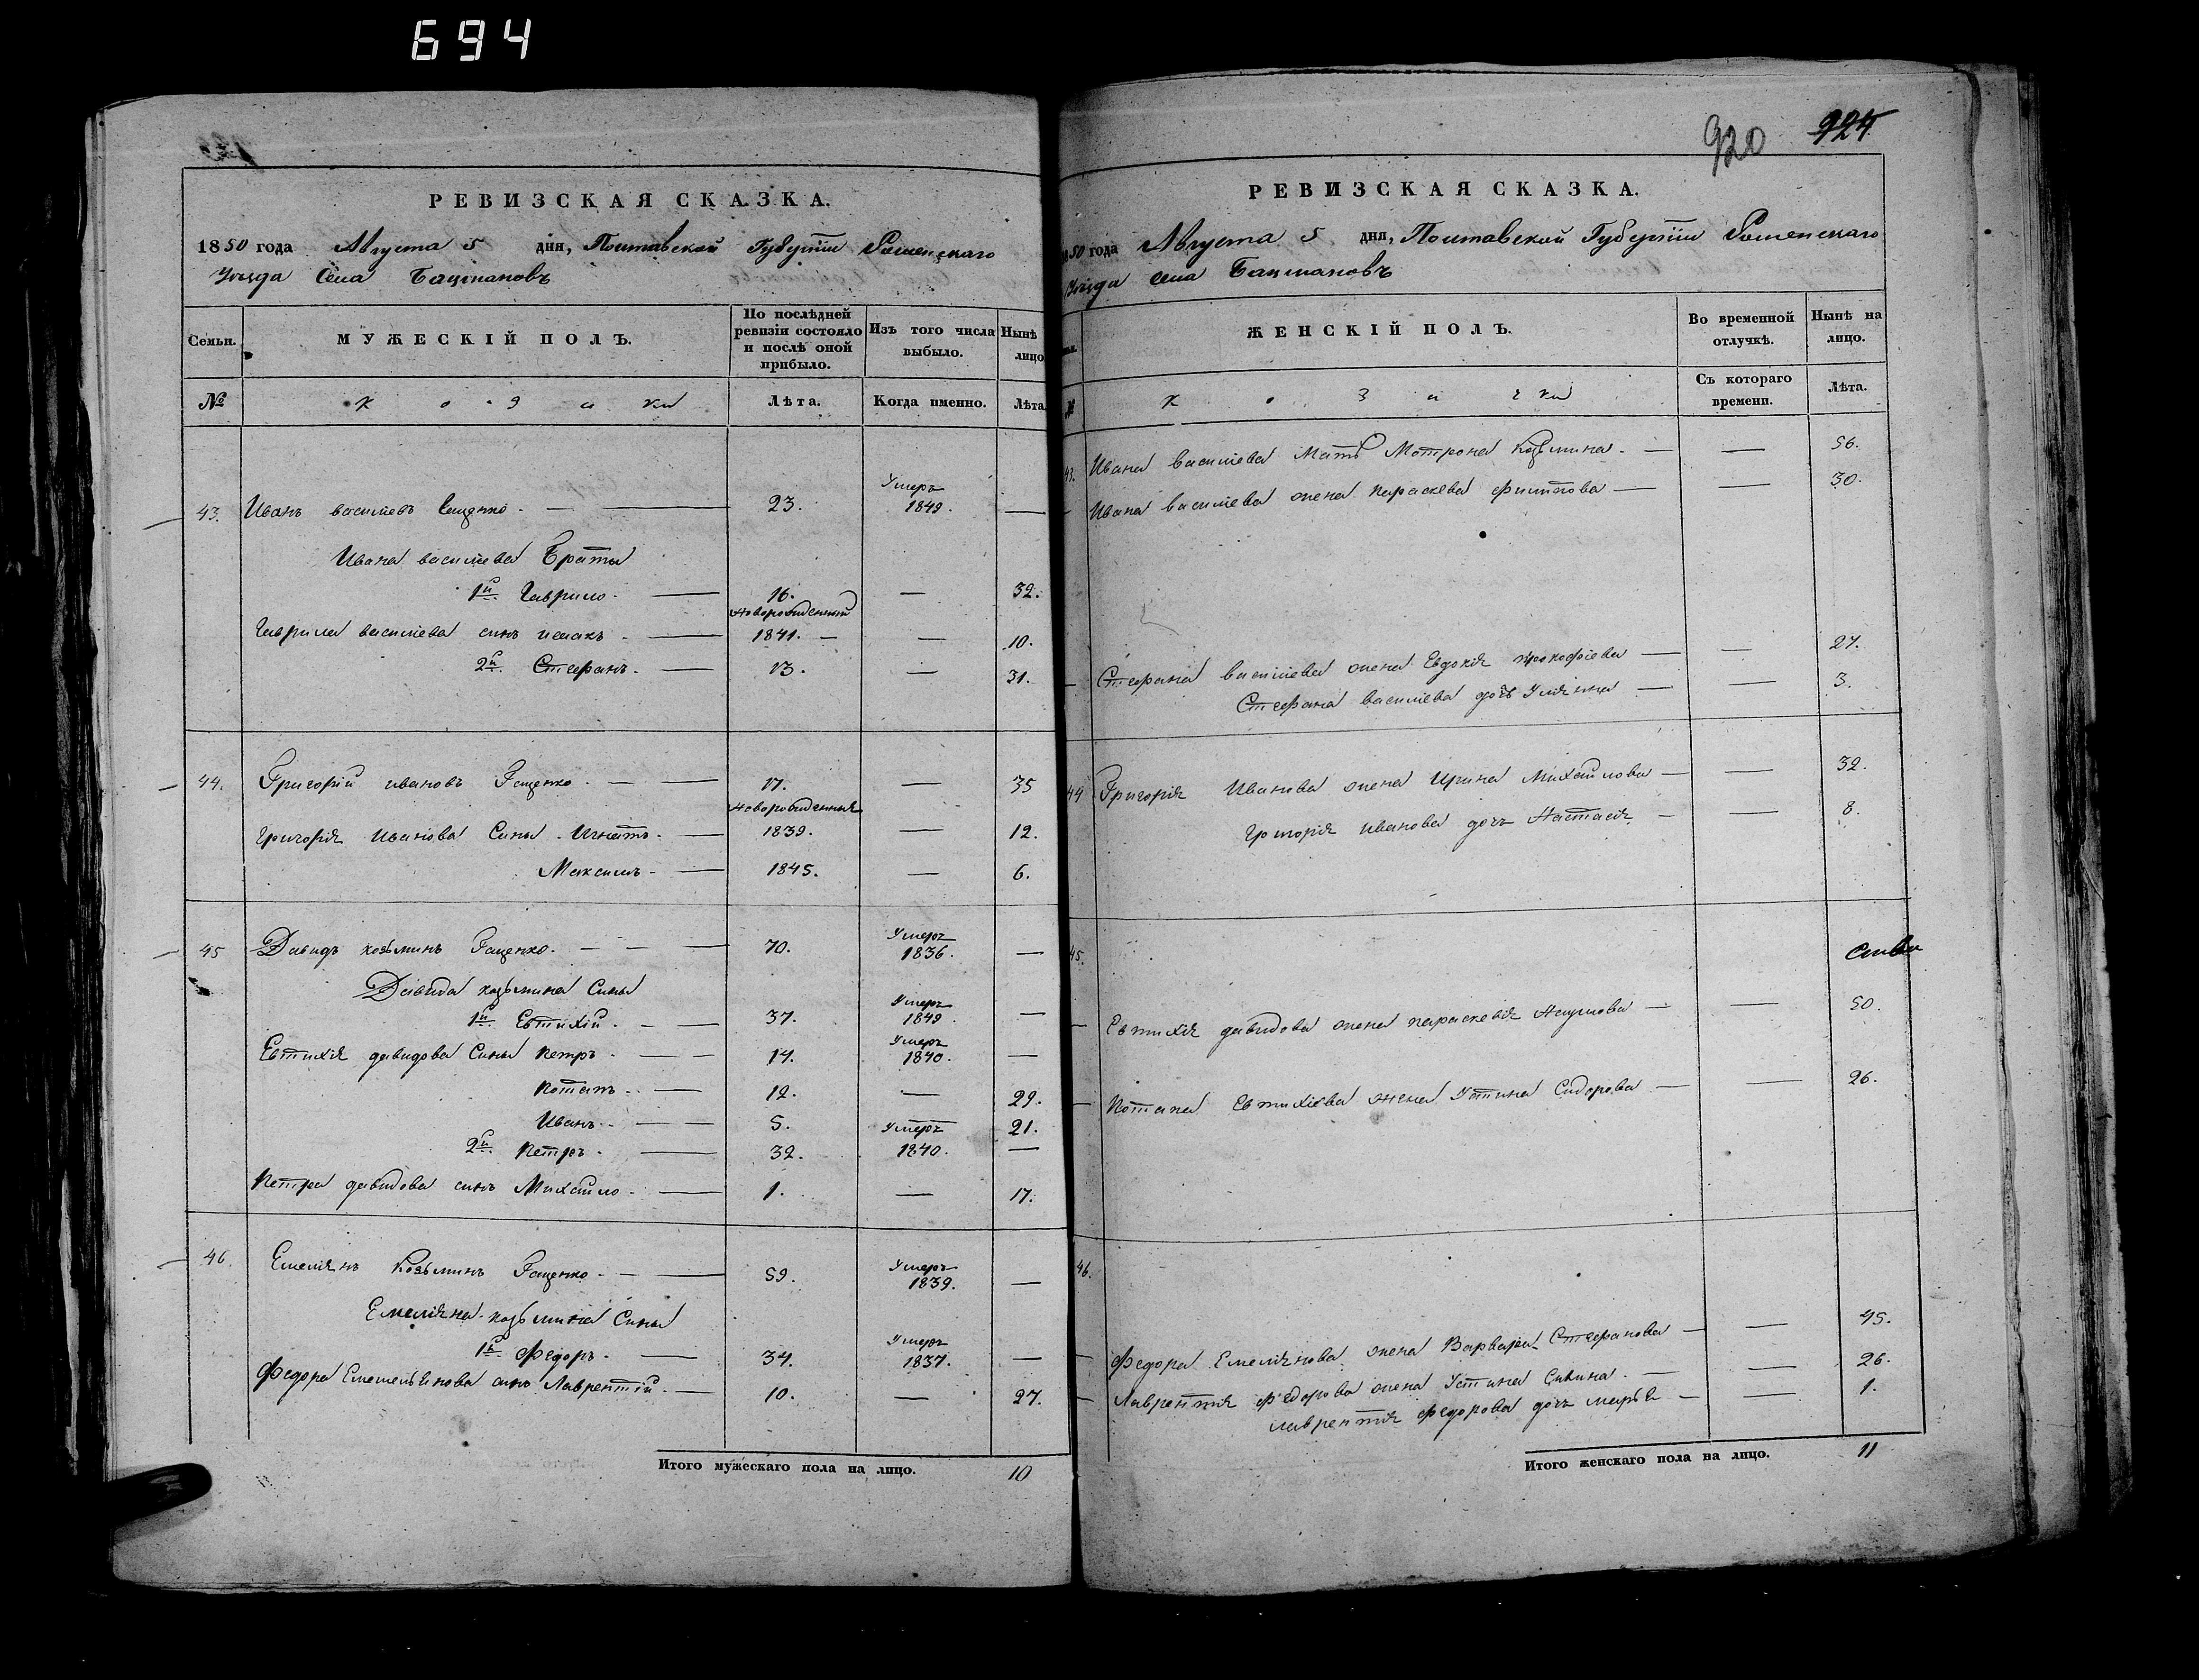 694
РЕВИЗСКАЯ СКАЗКА.
1850 года Августа 5 дня, Полтавской Губерніи Роменскаго
Уѣзда Села Бацмановъ
Семьи.
МУЖЕСКІЙ ПОЛЪ.
По послѣдней ревизіи состояло и послѣ оной прибыло.
Изъ того числа выбыло.
Нынѣ лицо
№
Козаки
Лѣта.
Когда именно.
Лѣта
43. Иванъ васильевъ 23. Умеръ 1849. —
Ивана васильева Браты
1й Гаврило. — 16. — 32.
Гаврила васильева сынъ исаакъ. — новорожденный 1841. — — 10.
2й Стефанъ. — 13. — 31.
44. Григорій ивановъ Гащенко. — 17. — 35
Григорія Иванова Сыны Игнатъ. — новорожденныя 1839. — 12.
Максимъ. — 1845. — 6.
45 Давидъ козьминъ Гащенко. — 70. Умеръ 1836. —
Давида козьмина Сыны
1й Евтихій. — 37. Умеръ 1849. —
Евтихія давидова Сыны петръ. — 14. Умеръ 1840. —
потапъ. — 12. — 29.
Иванъ. — 5. — 21.
2й петръ. — 32. Умеръ 1840. —
петра давидова сынъ Михайло. — 1. — 17.
46. Емеліянъ Козьминъ Гащенко. — 59. Умеръ 1839. —
Емеліяна козьмина Сыны
1й Федоръ. — 34. Умеръ 1837. —
Федора Емельянова сынъ Лаврентій. — 10. — 27.
Итого мужескаго пола на лицо. 10
920 924
РЕВИЗСКАЯ СКАЗКА.
1850 года Августа 5 дня, Полтавской Губерніи Роменскаго
Уѣзда села Бацмановъ
ЖЕНСКІЙ ПОЛЪ.
Во временной отлучкѣ.
Нынѣ на лицо.
№
Козачки
Съ котораго времени.
Лѣта.
43. Ивана васильева Мать Мотрона Козьмина. — — 56.
Ивана васильева жена параскева филипова — — 30.
Стефана васильева жена Евдокія прокофіева — — 27.
Стефана васильева дочь Уліяна — — 3.
44 Григорія Иванова жена Ирина Михайлова — — 32.
Григорія иванова дочь Настасія — — 8.
45.
Евтихія давидова жена параскевія Наумова — — 50.
Потапа Евтихіева жена Устина Сидорова — — 26.
46.
Федора Емеліянова жена Варвара Стефанова — — 45.
Лаврентія федорова жена Устина Савина. — — 26.
лаврентія федорова дочь марья — — 1.
Итого женскаго пола на лицо. 11